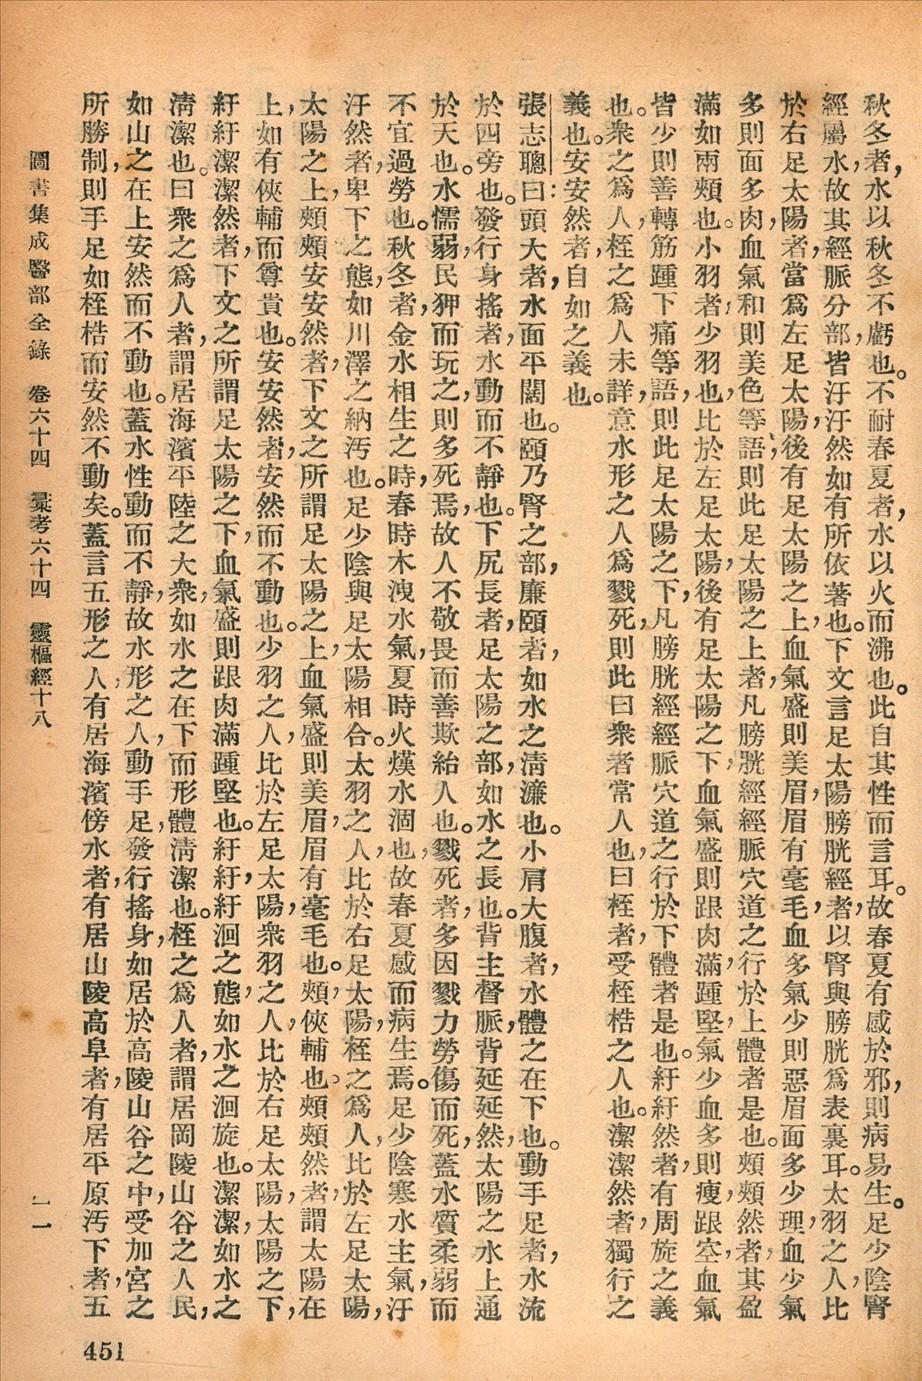 秋冬者，水以秋冬不虧也。不耐春夏者，水以火而沸也。此自其性而言耳。故春夏有感於邪，則病易生。足少陰腎
經屬水，故其經脈分部，皆汗汗然如有所依著也。下文言足太陽膀胱經者，以腎與膀胱爲表裏耳。太羽之人，比
於右足太陽者，當爲左足太陽，後有足太陽之上，血氣盛則美眉，眉有毫毛，血多氣少則惡眉，面多少理，血少氣
多則面多肉，血氣和則美色等語，則此足太陽之上者，凡膀胱經經脈穴道之行於上體者是也。頰頰然者，其盈
滿如兩頰也。小羽者，少羽也，比於左足太陽，後有足太陽之下，血氣盛則跟肉滿，踵堅，氣少血多則瘦，跟空，血氣
皆少則善轉筋，踵下痛等語，則此足太陽之下，凡膀胱經經脈穴道之行於下體者是也。紆紆然者，有周旋之義
也。衆之爲人，桎之爲人，未詳，意水形之人爲戮死，則此曰衆者常人也，曰桎者，受桎梏之人也。潔潔然者，獨行之
義也。安安然者，自如之義也。
張志聰曰：頭大者，水面平闊也。頤乃腎之部，廉頤者，如水之清濂也。小肩大腹者，水體之在下也。動手足者，水流
於四旁也。發行身搖者，水動而不靜也。下尻長者，足太陽之部，如水之長也。背主督脈，背延延然，太陽之水上通
於天也。水懦弱，民狎而玩之，則多死焉，故人不敬畏而善欺紿人也。戮死者，多因戮力勞傷而死，蓋水質柔弱而
不宜過勞也。秋冬者，金水相生之時，春時木洩水氣，夏時火熯水涸也，故春夏感而病生焉。足少陰寒水主氣，汗
汗然者，卑下之態，如川澤之納汚也。足少陰與足太陽相合。太羽之人，比於右足太陽，桎之爲人，比於左足太陽，
太陽之上，頰頰安安然者，下文之所謂足太陽之上，血氣盛則美眉，眉有毫毛也。頰，俠輔也。頰頰然者，謂太陽在
上，如有俠輔而尊貴也。安安然者，安然而不動也。少羽之人，比於左足太陽，衆羽之人，比於右足太陽，太陽之下，
紆紆潔潔然者，下文之所謂足太陽之下，血氣盛則跟肉滿踵堅也。紆紆，紆洄之態，如水之洄旋也。潔潔，如水之
淸潔也。曰衆之爲人者，謂居海濱平陸之大衆，如水之在下而形體清潔也。桎之爲人者，謂居岡陵山谷之人民，
如山之在上安然而不動也。蓋水性動而不靜，故水形之人，動手足，發行搖身，如居於高陵山谷之中，受加宮之
所勝制，則手足如桎梏而安然不動矣。蓋言五形之人，有居海濱傍水者，有居山陵高阜者，有居平原汚下者，五
圖書集成醫部全錄　卷六十四　彙考六十四　靈樞經十八　一一
451